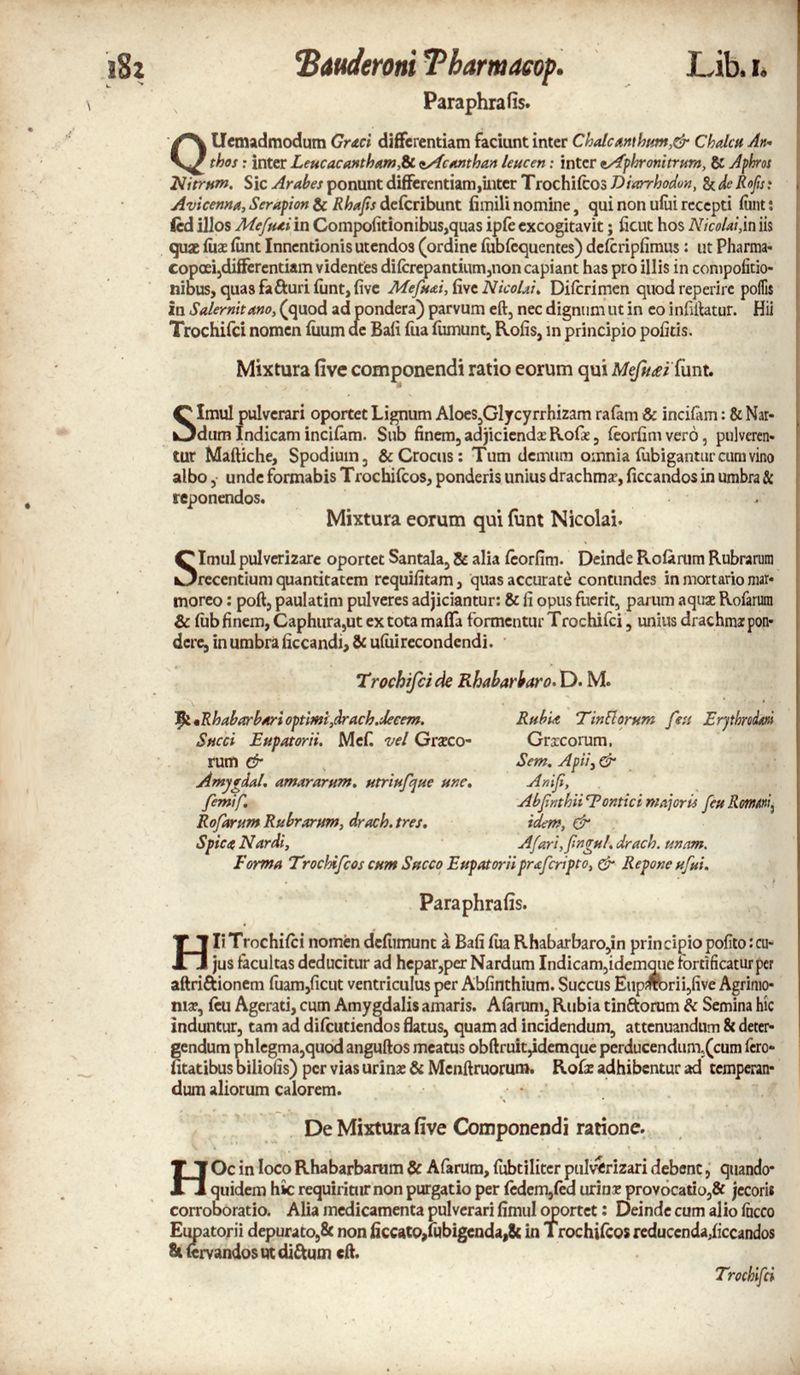 182 Bauderoni Pharmacop. Lib. 1.
Paraphraſis.
QUemadmodum Græci differentiam faciunt inter Chalcanthum,& Chalcu An-
thos : inter Leucacantham,& Acanthan leucen : inter Aphronitrum, & Aphros
Nitrum. Sic Arabes ponunt differentiam,inter Trochiſcos Diarrhodon, & de Roſis :
Avicenna, Serapion & Rhaſis deſcribunt ſimili nomine, qui non uſui recepti ſunt :
ſed illos Meſuæi in Compoſitionibus,quas ipſe excogitavit ; ſicut hos Nicolai,in iis
quæ ſuæ ſunt Innentionis utendos (ordine ſubſequentes) deſcripſimus : ut Pharma-
copœi,differentiam videntes diſcrepantium,non capiant has pro illis in compoſitio-
nibus, quas facturi ſunt, ſive Meſuæi, ſive Nicolai. Diſcrimen quod reperire poſſis
in Salernitano, (quod ad pondera) parvum eſt, nec dignum ut in eo inſiſtatur. Hii
Trochiſci nomen ſuum de Baſi ſua ſumunt, Roſis, in principio poſitis.
Mixtura ſive componendi ratio eorum qui Meſuæi ſunt.
SImul pulverari oportet Lignum Aloes,Glycyrrhizam raſam & inciſam : & Nar-
dum Indicam inciſam. Sub finem, adjiciendæ Roſæ, ſeorſim verò, pulveren-
tur Maſtiche, Spodium, & Crocus : Tum demum omnia ſubigantur cum vino
albo, unde formabis Trochiſcos, ponderis unius drachmæ, ſiccandos in umbra &
reponendos.
Mixtura eorum qui ſunt Nicolai.
SImul pulverizare oportet Santala, & alia ſeorſim. Deinde Roſarum Rubrarum
recentium quantitatem requiſitam, quas accuratè contundes in mortario mar-
moreo : poſt, paulatim pulveres adjiciantur: & ſi opus fuerit, parum aquæ Roſarum
& ſub finem, Caphura,ut ex tota maſſa formentur Trochiſci, unius drachmæ pon-
dere, in umbra ſiccandi, & uſui recondendi.
Trochiſci de Rhabarbaro. D. M.
℞. Rhabarbari optimi,drach.decem.
Succi Eupatorii. Meſ. vel Græco-
rum &
Amygdal. amararum. utriuſque unc.
ſemiſ.
Roſarum Rubrarum, drach. tres.
Spicæ Nardi,
Rubiæ Tinctorum ſeu Erythrodani
Græcorum,
Sem. Apii, &
Aniſi,
Abſinthii Pontici majoris ſeu Romani,
idem, &
Aſari, ſingul. drach. unam.
Forma Trochiſcos cum Succo Eupatorii præſcripto, & Repone uſui.
Paraphraſis.
HIi Trochiſci nomen deſumunt à Baſi ſua Rhabarbaro,in principio poſito : cu-
jus facultas deducitur ad hepar,per Nardum Indicam,idemque fortificatur per
aſtrictionem ſuam,ſicut ventriculus per Abſinthium. Succus Eupatorii,ſive Agrimo-
niæ, ſeu Agerati, cum Amygdalis amaris. Aſarum, Rubia tinctorum & Semina hic
induntur, tam ad diſcutiendos flatus, quam ad incidendum, attenuandum & deter-
gendum phlegma,quod anguſtos meatus obſtruit,idemque perducendum,(cum ſero-
ſitatibus bilioſis) per vias urinæ & Menſtruorum. Roſæ adhibentur ad temperan-
dum aliorum calorem.
De Mixtura ſive Componendi ratione.
HOc in loco Rhabarbarum & Aſarum, ſubtiliter pulverizari debent, quando-
quidem hic requiritur non purgatio per ſedem,ſed urinæ provocatio,& jecoris
corroboratio. Alia medicamenta pulverari ſimul oportet : Deinde cum alio ſucco
Eupatorii depurato,& non ſiccato,ſubigenda,& in Trochiſcos reducenda,ſiccandos
& ſervandos ut dictum eſt.
Trochiſci